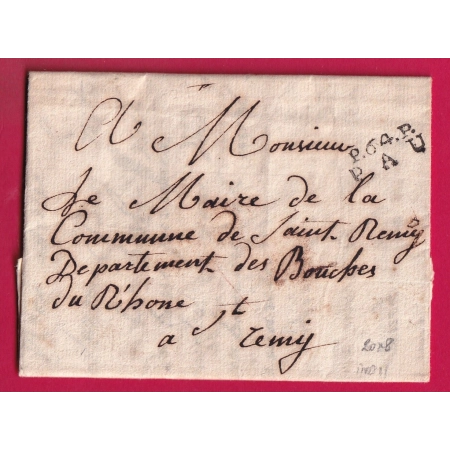 A Monsieur
P.64.P.
PAU
Le Maire de la
Commune de Saint Remy
Departement des Bouches
du Rhone
a St remy
2018